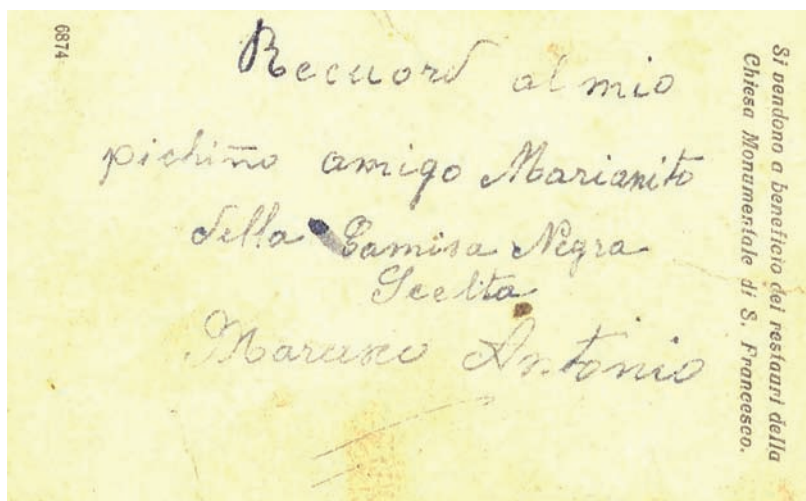 Recuord al mio
pichiño amigo Marianito
della Camisa Negra
Scelta
Antonio
Si vendono a beneficio dei restauri della
Chiesa Monumentale di S. Francesco.
6874